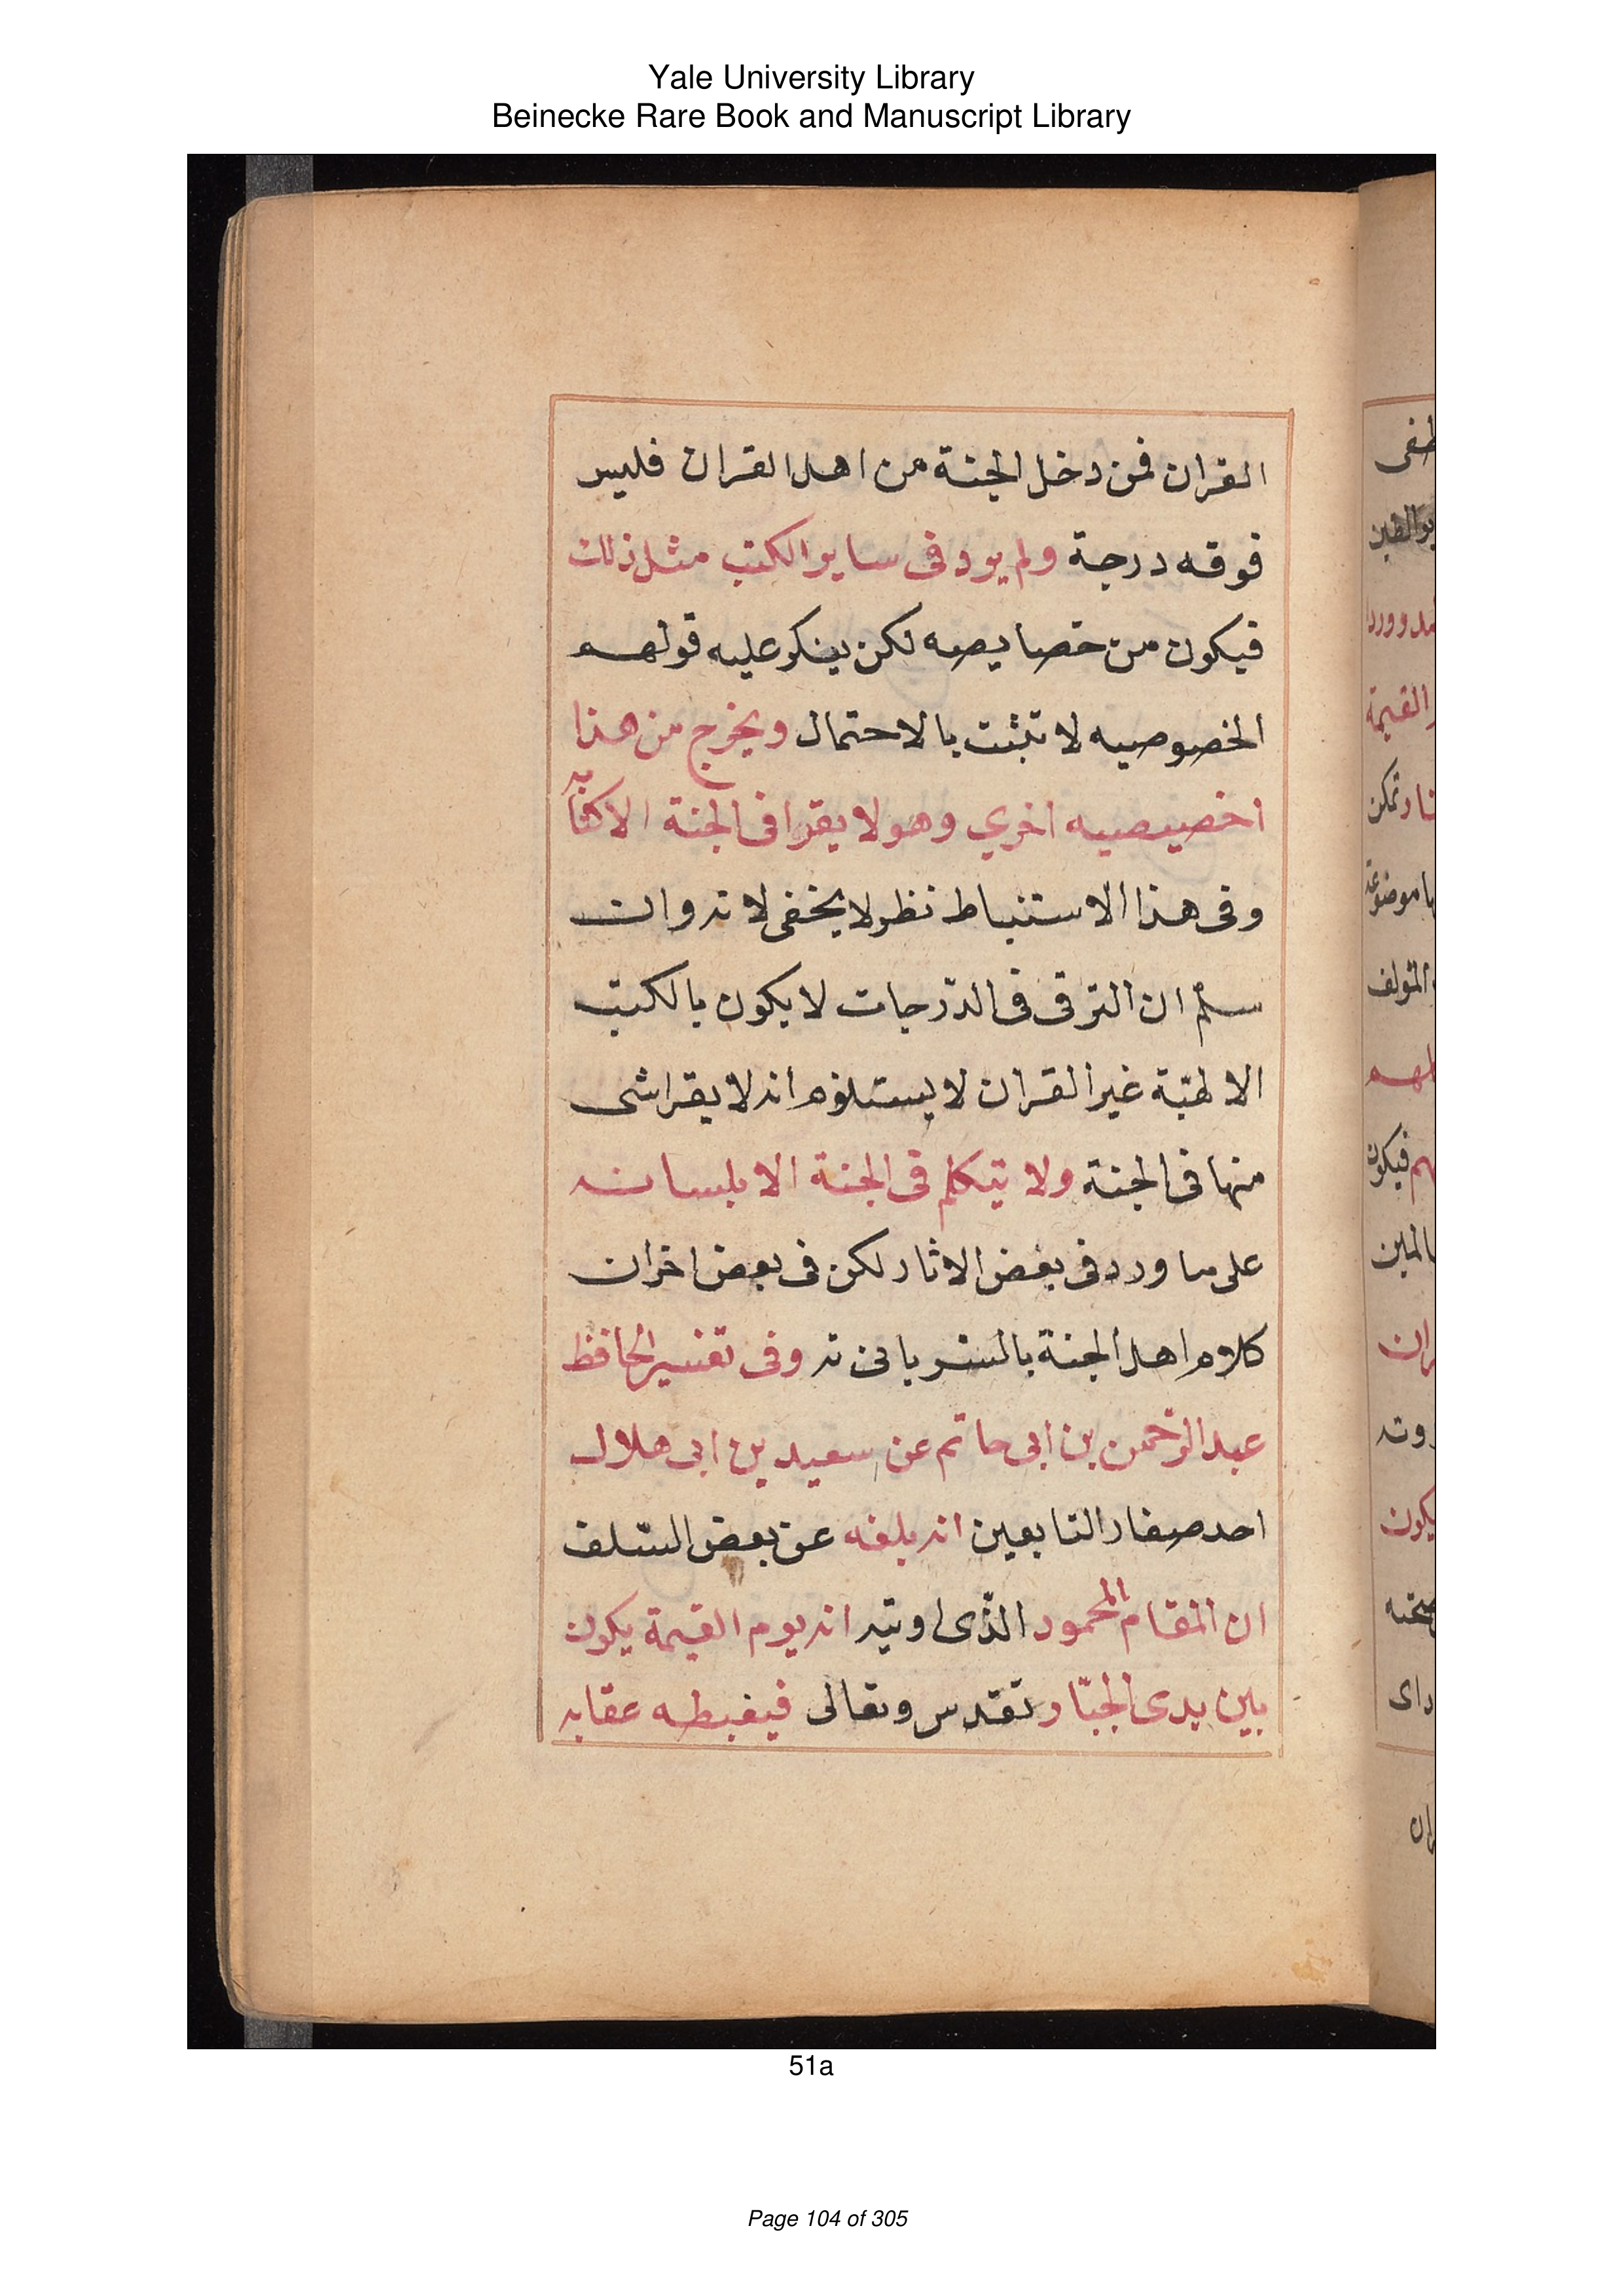 Yale University Library
Beinecke Rare Book and Manuscript Library
القران فمن دخل الجنة من اهل القران فليس
فوقه درجة ولم يرد فى ساير الكتب مثل ذلك
فيكون من خصايصه لكن ينكر عليه قولهم
الخصوصيه لا تثبت بالاحتمال ويخرج من هذا
اخصيصيه اخري وهو لا يقرا فى الجنة الا كتابه
وفى هذا الاستنباط نظر لا يخفى لانه وان
سلم ان الترقى فى الدرجات لا يكون بالكتب
الالهية غير القران لا يستلزم انه لا يقرا شى
منها فى الجنة ولا يتكلم فى الجنة الا بلسانه
على ما ورد فى بعض الاثار لكن فى بعض اخران
كلام اهل الجنة بالسريانى نه وفى تفسير الحافظ
عبد الرحمن بن ابى حاتم عن سعيد بن ابى هلال
احد صغار التابعين انه بلغه عن بعض السلف
ان المقام المحمود الذى اوتيه انه يوم القيمة يكون
بين يدى الجبار تقدس وتعالى فيغبطه عقابه
طفى
ران
51a
Page 104 of 305